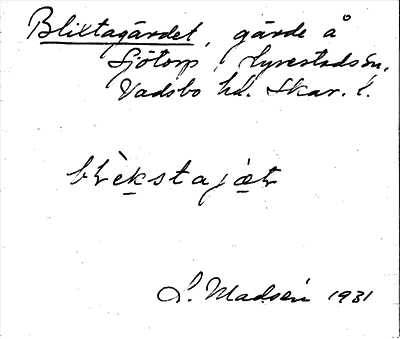 Blixtagärdet, gärde å
Sjötorp, Lyrestads sn,
Vadsbo hd. Skar. l.
blèkstajæt
S. Madsén 1931